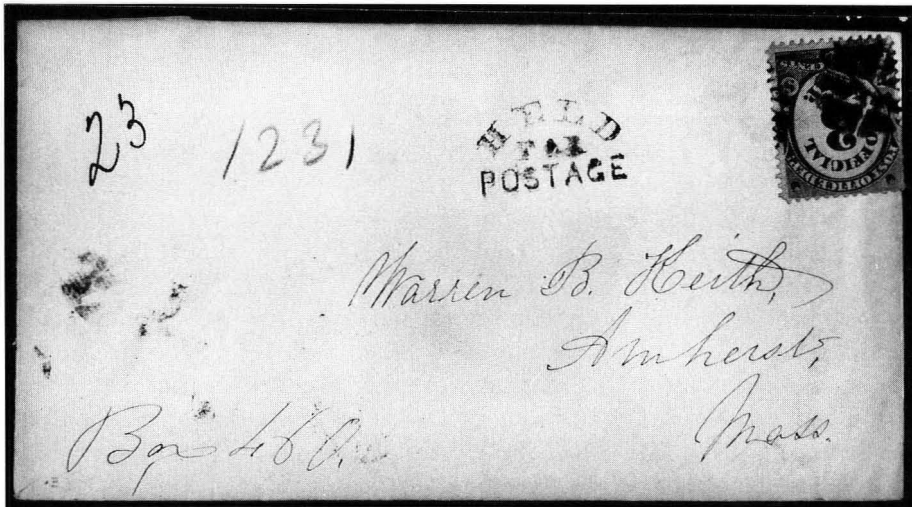 23
1231
HELD
FOR
POSTAGE
OFFICIAL
Warren B. Keith,
Amherst,
Mass.
Box 460.